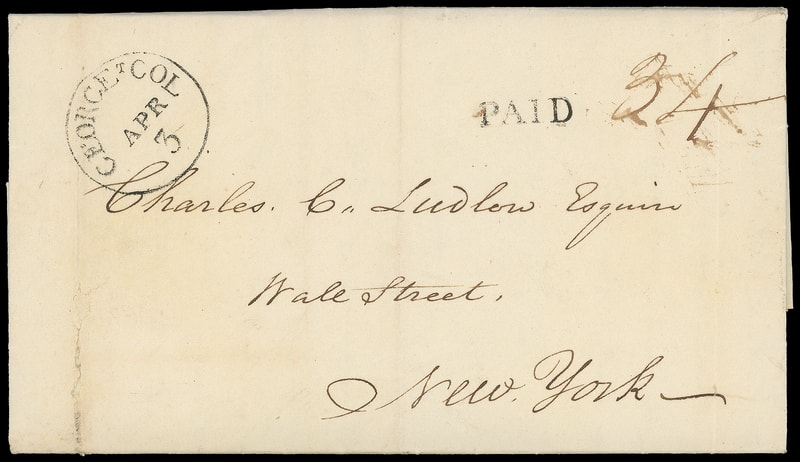 GEORGEᵀ COL
APR
3
PAID 34
Charles. C,, Ludlow Esquire
Wall Street.
New. York